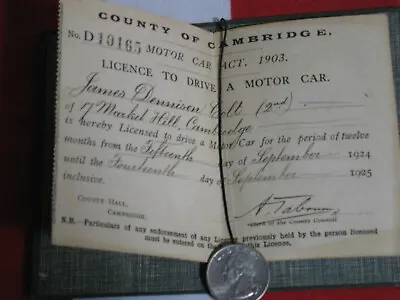 COUNTY OF CAMBRIDGE.
No. D10165 MOTOR CAR ACT, 1903.
LICENCE TO DRIVE A MOTOR CAR.
James Dennison Colt (2nd)
of 17 Market Hill, Cambridge
is hereby Licensed to drive a Motor Car for the period of twelve
months from the Fifteenth day of September 1924
until the Fourteenth day of September 1925
inclusive.
COUNTY HALL,
CAMBRIDGE.
of the County Council
N.B. Particulars of any endorsement of any Licence previously held by the person licensed
must be entered on the of this Licence.